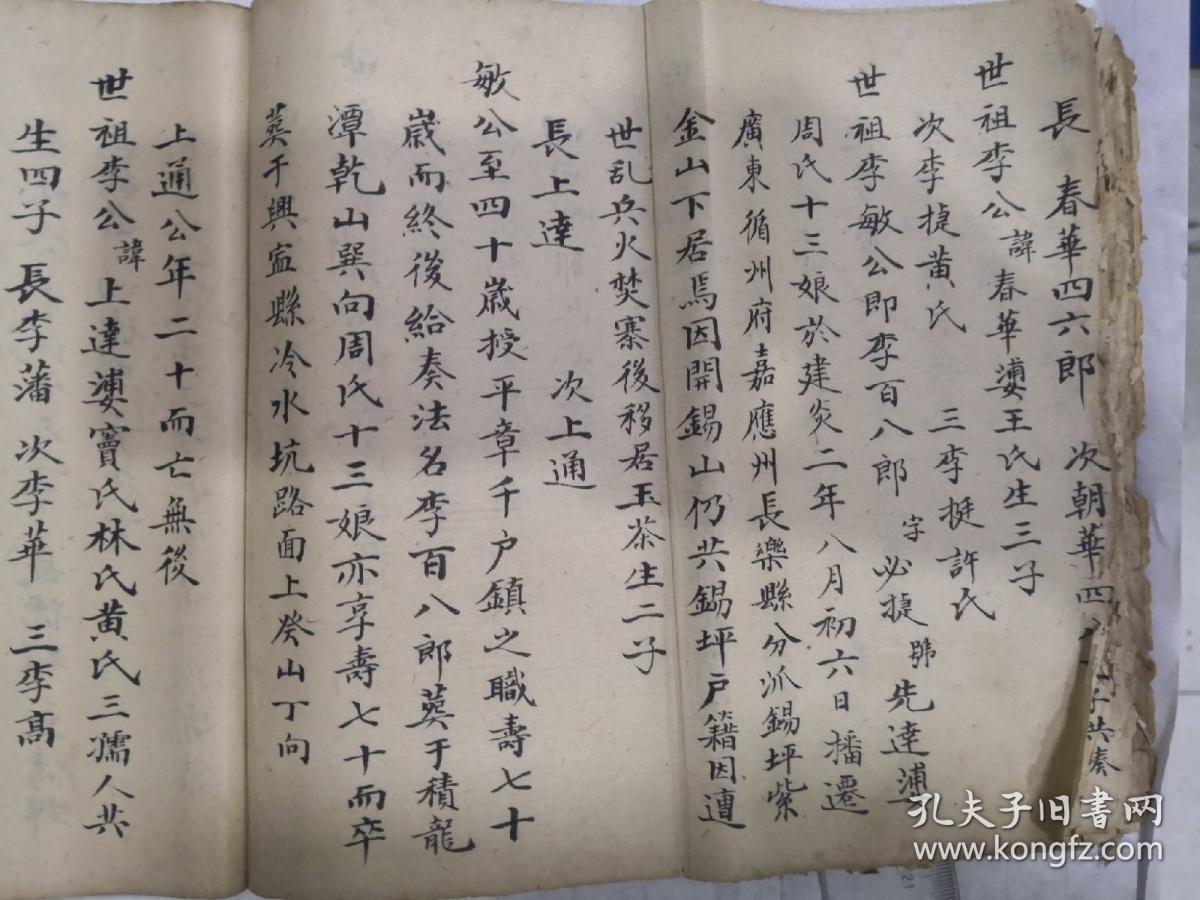 長 春華四六郎 次朝華四八
世祖李公諱春華婆王氏生三子
次李捷黄氏 三李挺許氏
世祖李敏公即李百八郎字必捷號先達婆
周氏十三娘於建炎二年八月初六日播遷
廣東循州府嘉應州長樂縣分派錫坪紫
金山下居焉因開錫山仍共錫坪戶籍因遭
世乱兵火焚寨後移居玉茶生二子
長上達 次上通
敏公至四十歲授平章千户鎮之職壽七十
歲而終後給奏法名李百八郎葬于積龍
潭乾山巽向周氏十三娘亦享壽七十而卒
葬于興寍縣冷水坑路面上癸山丁向
上通公年二十而亡無後
世祖李公諱上達婆竇氏林氏黄氏三孺人共
生四子 長李藩 次李華 三李高
子共奏
孔夫子旧书网
www.kongfz.com